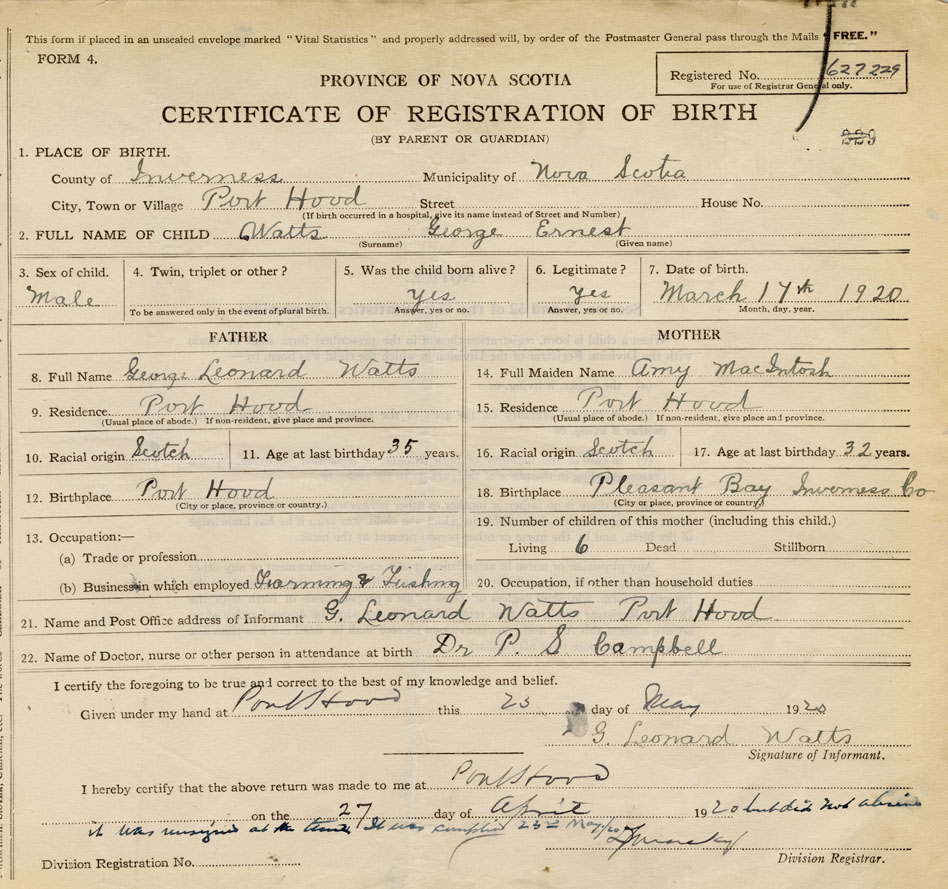 This form if placed in an unsealed envelope marked "Vital Statistics" and properly addressed will, by order of the Postmaster General pass through the Mails "FREE."
FORM 4.
Registered No. 627229
For use of Registrar General only.
PROVINCE OF NOVA SCOTIA
CERTIFICATE OF REGISTRATION OF BIRTH
(BY PARENT OR GUARDIAN)
1. PLACE OF BIRTH.
County of Inverness Municipality of Nova Scotia
City, Town or Village Port Hood Street House No.
(If birth occurred in a hospital, give its name instead of Street and Number)
2. FULL NAME OF CHILD Watts George Ernest
(Surname) (Given name)
3. Sex of child. 4. Twin, triplet or other? 5. Was the child born alive? 6. Legitimate? 7. Date of birth.
Male yes yes March 17th 1920
To be answered only in the event of plural birth. Answer, yes or no. Answer, yes or no. Month, day, year.
FATHER MOTHER
8. Full Name George Leonard Watts 14. Full Maiden Name Amy MacIntosh
9. Residence. Port Hood 15. Residence Port Hood
(Usual place of abode.) If non-resident, give place and province. (Usual place of abode.) If non-resident, give place and province.
10. Racial origin Scotch 11. Age at last birthday 35 years. 16. Racial origin Scotch 17. Age at last birthday 32 years.
12. Birthplace Port Hood 18. Birthplace Pleasant Bay Inverness Co
(City or place, province or country.) (City or place, province or country.)
13. Occupation:— 19. Number of children of this mother (including this child.)
(a) Trade or profession Living 6 Dead Stillborn
(b) Business in which employed Farming & Fishing 20. Occupation, if other than household duties
21. Name and Post Office address of Informant G. Leonard Watts Port Hood
22. Name of Doctor, nurse or other person in attendance at birth Dr P. S Campbell
I certify the foregoing to be true and correct to the best of my knowledge and belief.
Given under my hand at Port Hood this 23 day of May 1920
G. Leonard Watts
Signature of Informant.
I hereby certify that the above return was made to me at Port Hood
on the 27 day of April 1920 but did not observe
it was unsigned at the time. It was completed 23rd May/20
Division Registration No. Division Registrar.